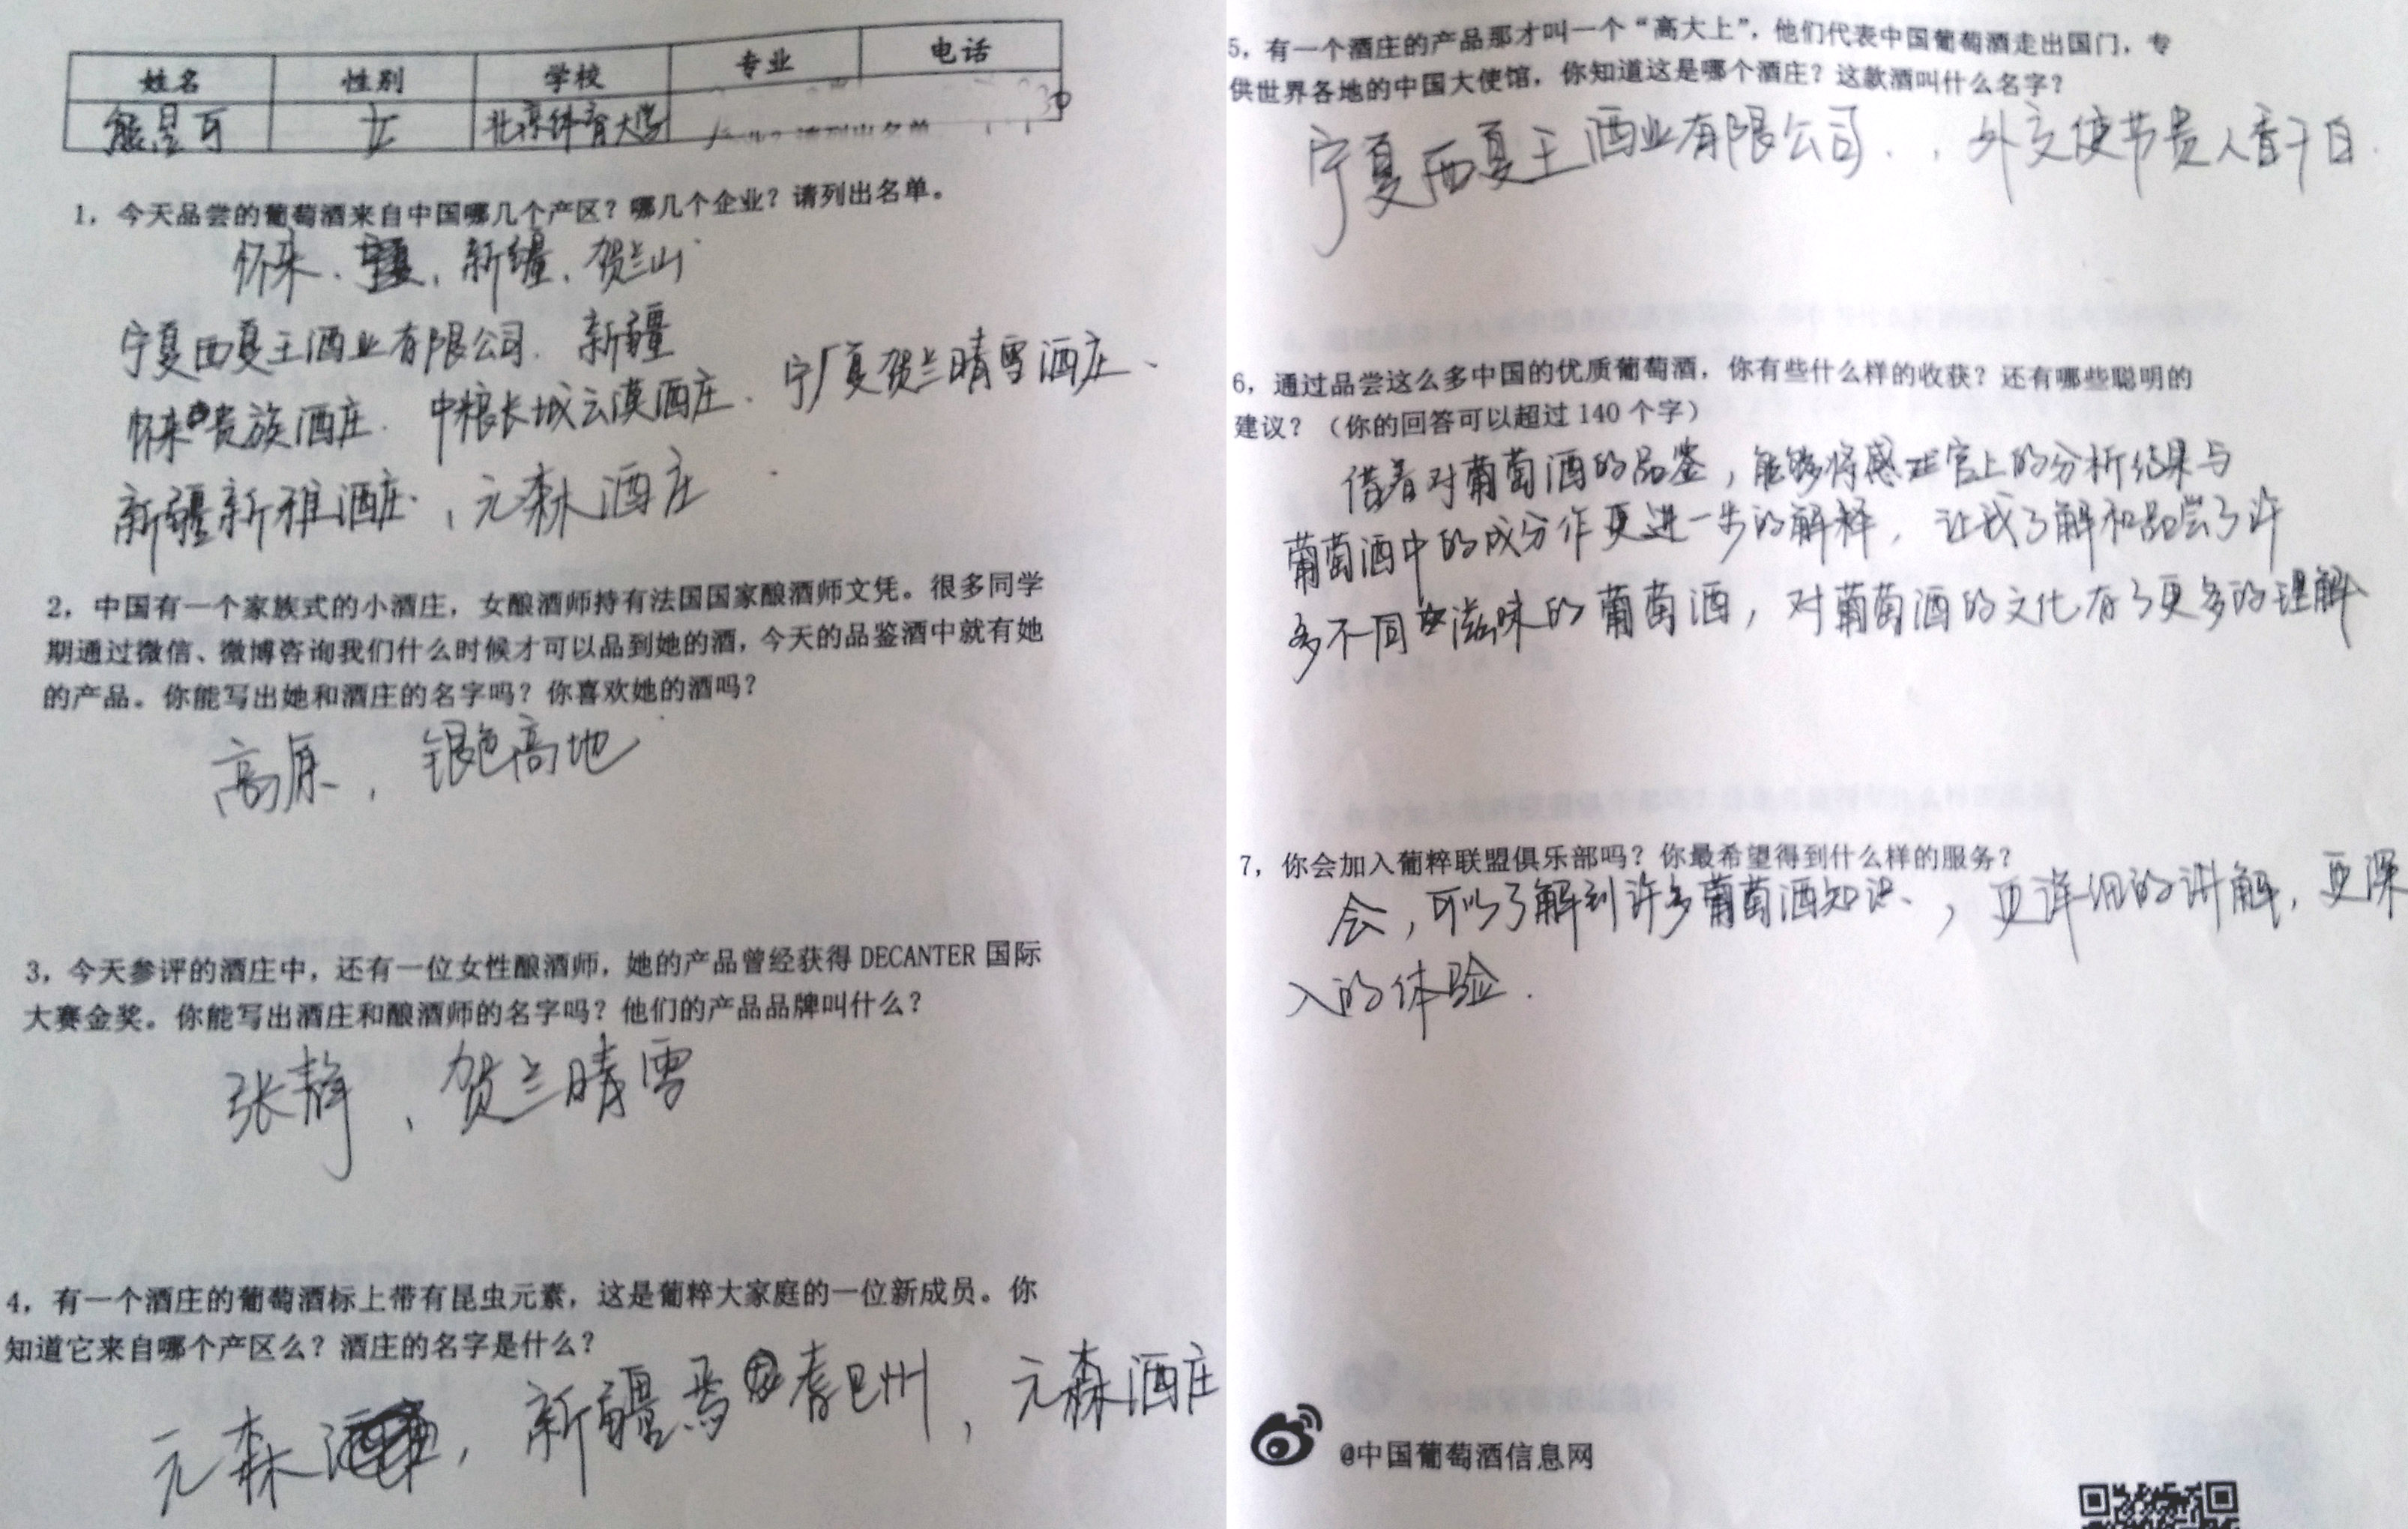 姓名 性别 学校 专业 电话
熊昱可 女 北京体育大学
1，今天品尝的葡萄酒来自中国哪几个产区？哪几个企业？请列出名单。
怀来、宁夏、新疆、贺兰山
宁夏西夏王酒业有限公司、新疆
怀来贵族酒庄、中粮长城云漠酒庄、宁夏贺兰晴雪酒庄、
新疆新雅酒庄，元森酒庄
2，中国有一个家族式的小酒庄，女酿酒师持有法国国家酿酒师文凭。很多同学
期通过微信、微博咨询我们什么时候才可以品到她的酒，今天的品鉴酒中就有她
的产品。你能写出她和酒庄的名字吗？你喜欢她的酒吗？
高原，银色高地
3，今天参评的酒庄中，还有一位女性酿酒师，她的产品曾经获得 DECANTER 国际
大赛金奖。你能写出酒庄和酿酒师的名字吗？他们的产品品牌叫什么？
张静、贺兰晴雪
4，有一个酒庄的葡萄酒标上带有昆虫元素，这是葡粹大家庭的一位新成员。你
知道它来自哪个产区么？酒庄的名字是什么？
元森酒，新疆焉耆巴州，元森酒庄
5，有一个酒庄的产品那才叫一个“高大上”，他们代表中国葡萄酒走出国门，专
供世界各地的中国大使馆，你知道这是哪个酒庄？这款酒叫什么名字？
宁夏西夏王酒业有限公司，外交使节贵人香干白
6，通过品尝这么多中国的优质葡萄酒，你有些什么样的收获？还有哪些聪明的
建议？（你的回答可以超过 140 个字）
借着对葡萄酒的品鉴，能够将感官上的分析结果与
葡萄酒中的成分作更进一步的解释，让我了解和品尝了许
多不同滋味的葡萄酒，对葡萄酒的文化有了更多的理解
7，你会加入葡粹联盟俱乐部吗？你最希望得到什么样的服务？
会，可以了解到许多葡萄酒知识，更详细的讲解，更深
入的体验.
@中国葡萄酒信息网